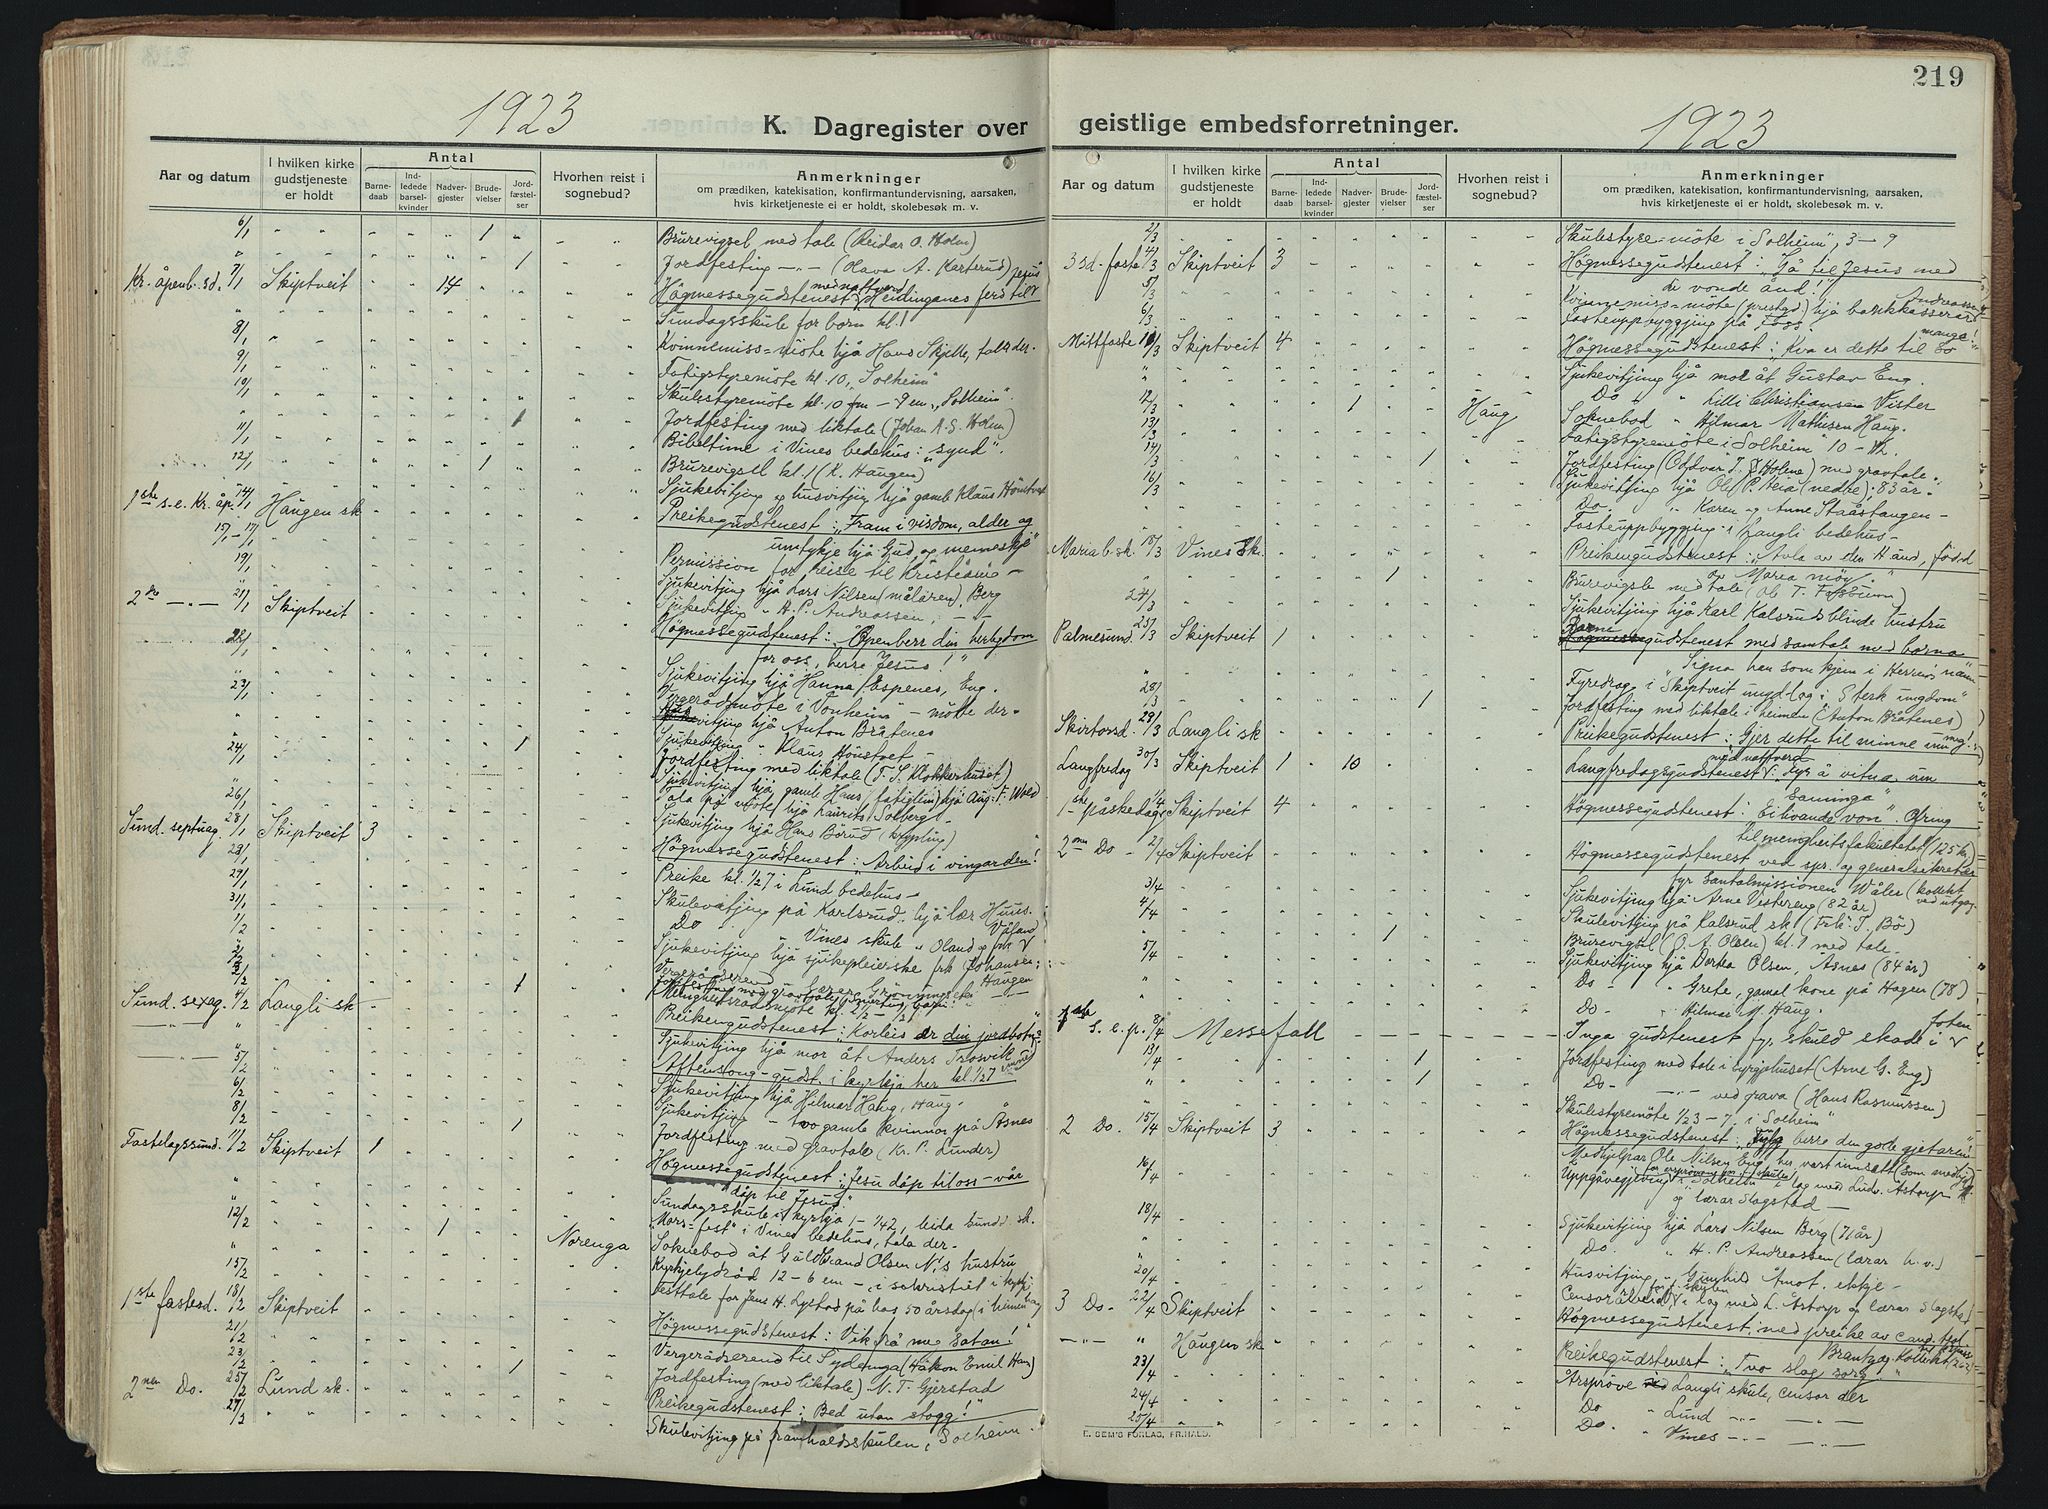 219
1923
K. Dagregister over
Aar og datum
I hvilken kirke gudstjeneste er holdt
Antal
Barnedaab
Indledede barselkvinder
Nadvergjester
Brudevielser
Jordfæstelser
Hvorhen reist i sognebud?
Anmerkninger
om prædiken, katekisation, konfirmantundervisning, aarsaken,
hvis kirketjeneste ei er holdt, skolebesøk m. v.
6/1 1 Brurevigsel med tale (Reidar O. Holm)
1 Jordfesting (Olava A. Karterud)
Kr. åpenb. sd. 7/1 Skiptveit 14 Högmessegudstenest med nattverd Heidinganes ferd til Jesus
Sundagsskule for born kl. 1
8/1 Kvinnemiss-möte hjå Hans Skjelle, talte der.
9/1 Fatigstyremöte kl. 10, "Solheim"
10/1 Skulestyremöte kl. 10 fm - 9 em "Solheim".
1 Jordfesting med liktale (Johan A. S. Holm)
11/1 Bibeltime i Vines bedehus: "synd".
12/1 1 Brurevigsel kl. 1 (K. Haugen)
Sjukevitjing og husvitjing hjå gamle Klaus Hönstvet
1ste s. e. Kr. åp. 14/1 Haugen sk Preikegudstenest: "Fram i visdom, alder og
umtykje hjå Gud og menneskje"
15/1 - 17/1 Permission for reise til Kristiania -
19/1 Sjukevitjing hjå Lars Nilsen (målaren), Berg
Sjukevitjing " H. P. Andreassen,
2do 21/1 Skiptveit Högmessegudstenest: "Openberr din herlegdom
for oss, herre Jesus!"
22/1 Sjukevitjing hjå Hanna Espenes, Eng.
Vergerådsmöte i "Vonheim" - mötte der -
23/1 Sjukevitjing hjå Anton Bråtenes
Sjukevitjing " Klaus Hönstvet
24/1 1 Jordfesting med liktale (T. S. Klokkerhuset)
Sjukevitjing hjå gamle Hans (fatiglem) hjå Aug. F. Wold
26/1 Tala på möte hjå Laurits Solberg -
Sjukevitjing hjå Hans Börud
Sund. septuag. 28/1 Skiptveit 3 Högmessegudstenest: "Arbeid i vingarden!"
Preike kl. 1/2 7 i Lund bedehus -
29/1 Skulevitjing på Karlsrud, hjå lær. Huus.
31/1 Do Vines skule " Oland og frk Våland
1/2 Sjukevitjing hjå sjukepleierske frk Johansen
2/2 1
Sund. sexag. 4/2 Langli sk Preikengudstenest: "Korleis er din jordbotn?"
Sjukevitjing hjå mor åt Anders Trosvik
Aftensong-gudst. i kyrkja her kl. 1/2 7
5/2 Sjukevitjing hjå Hilmar Haug, Haug.
6/2 Sjukevitjing - two gamle kvinnor på Åsnes
8/2 1 Jordfesting med gravtale (Kr. P. Lunder)
Fastelagssund. 11/2 Skiptveit 1 Högmessegudstenest: "Jesu dåp til oss - vår
dåp til Jesus"
Sundagsskule i kyrkja 1 - 1/4 2, leida sundsk.
"Mors-fest" i Vines bedehus, tala der -
12/2 1 Norenga Soknebod åt Guldbrand Olsen N.s hustru
Kyrkjelydråd 12 - 6 em - i sakristiet i kyrkja
15/2 Festtale for Jens H. Lystad på has 50 årsdag (i heimen)
1ste fastesd. 18/2 Skiptveit Högmessegudstenest: "Vik frå meg Satan!"
21/2 Vergerådserend til Syderenga (Håkon Emil Hans)
23/2 1 Jordfesting (med liktale) N. T. Gjerstad
2nen Do. 25/2 Lund sk. Preikegudstenest: "Bed utan stogg!"
27/2 Skulevitjing på framhaldsskulen, Solheim.
geistlige embedsforretninger.
1923
Aar og datum
I hvilken kirke gudstjeneste er holdt
Antal
Barnedaab
Indledede barselkvinder
Nadvergjester
Brudevielser
Jordfæstelser
Hvorhen reist i sognebud?
Anmerkninger
om prædiken, katekisation, konfirmantundervisning, aarsaken,
hvis kirketjeneste ei er holdt, skolebesøk m. v.
2/3 Skulestyre-möte i "Solheim", 3 - 9
3 sd. faste 4/3 Skiptveit 3 Högmessegudstenest: "Gå til Jesus med
dei vonde ånd!"
5/3 Kvinnemiss-möte (prestgd.) hjå bankkasserar Andreassen
6/3 Fasteuppbyggjing på Foss.
Mittfaste 11/3 Skiptveit 4 Högmessegudstenest: "Kva er dette til so mange!"
Sjukevitjing hjå mor åt Gustav Eng.
Do " Lilli Christiansen Vister
12/3 1 Haug Soknebod " Hilmar Mathisen Haug.
13/3 Fatigstyremöte i "Solheim" 10 - 1/2.
14/3 1 Jordfesting (Oddvar T. J. Holene) med gravtale.
16/3 Sjukevitjing hjå Ole P. Heia (nedre); 83 år -
Do. " Karen og Anne Staåstangen -
Fasteuppbyggjing i Langli bedehus -
Maria b. sk. 18/3 Vines Sk. Preikengudstenest: "Avla av den H. ånd, född
av Maria möy."
1 Burevigsle med tale (Ole T. Fossum)
24/3 Sjukevitjing hjå Karl Kalsruds blinde hustru
Palmesund. 25/3 Skiptveit 1 Barnegudstenest med samtale med borna
"Signa han som kjem i Herrens namn"
Fyredrag i Skiptveit ungd.lag: "Sterk ungdom"
28/3 1 Jordfesting med liktale i heimen (Anton Bråtenes)
Skirtorsd. 29/3 Langli sk Preikegudstenest: "Gjer dette til minne um meg!"
Langfredag 30/3 Skiptveit 1 10 Langfredagsgudstenest med nattverd: "Fyr å vitna um
Sanninga".
1ste påskedag 1/4 Skiptveit 4 Högmessegudstenest: "Ei livande von". Ofring
til menighetsfakultetet (125 kr.)
2nen Do - 2/4 Skiptveit Högmessegudstenest ved spr. og generalsekretær
fyr Santalmissionen Wåler (kollekt ved utgang.
3/4 Sjukevitjing hjå Arne Vestereng (82 år)
4/4 Skulevitjing på Kalsrud sk. (Frk. T. Bö)
1 Brurevigsel (O. A. Olsen) kl. 1 med tale -
5/4 Sjukevitjing hjå Dorthea Olsen, Åsnes (84 år)
Do - " Grete, gamal kone på Hagen (78)
Do. " Hilmar M. Haug.
1ste s. e. p. 8/4 Messefall Inga gudstenest fyr skuld skade i foten
13/4 1 Jordfesting med tale i syrgjehuset (Arne G. Eng)
1 Do - ved grava (Hans Rasmussen)
Skulestyremöte 1/2 3 - 7, i "Solheim"
2 Do. 15/4 Skiptveit 3 Högmessegudstenest: "Fylg berre den gode gjetaren"
Medhjelpar Ole Nilsen Eng her vart innsett som medhj.
16/4 Uppgåvegjeving i "Solheim" i lag med Ludv. Åstorp
og lærar Slagstad -
18/4 Sjukevitjing hjå Lars Nilsen Berg (71 år)
Do. " H. P. Andreassen (lærar h. v.)
Husvitjing " Gunhild Åmot, ekkje -
20/4 Censorarbeid for skulen i lag med L. Åstorp og lærar Slagstad
3 Do. 22/4 Skiptveit Högmessegudstenest, med preike av cand. theol
Brantzæg. Kollekt
" Haugen sk Preikegudstenest: "Tvo slag sorg"
23/4 Årspröve Langli skule, censor der
24/4 Do " Lund
25/4 Do. " Vines
E. SEM'S FORLAG, FR.HALD.